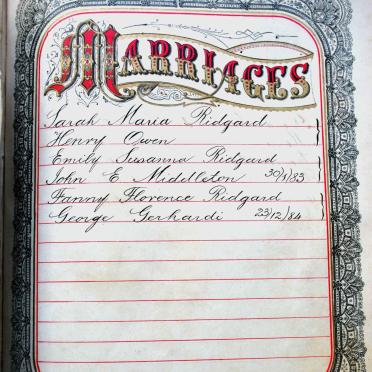 MARRIAGES
Sarah Maria Ridgard
Henry Owen
Emily Susanna Ridgard
John E Middleton 30/1/83
Fanny Florence Ridgard
George Gerhardi 23/12/84